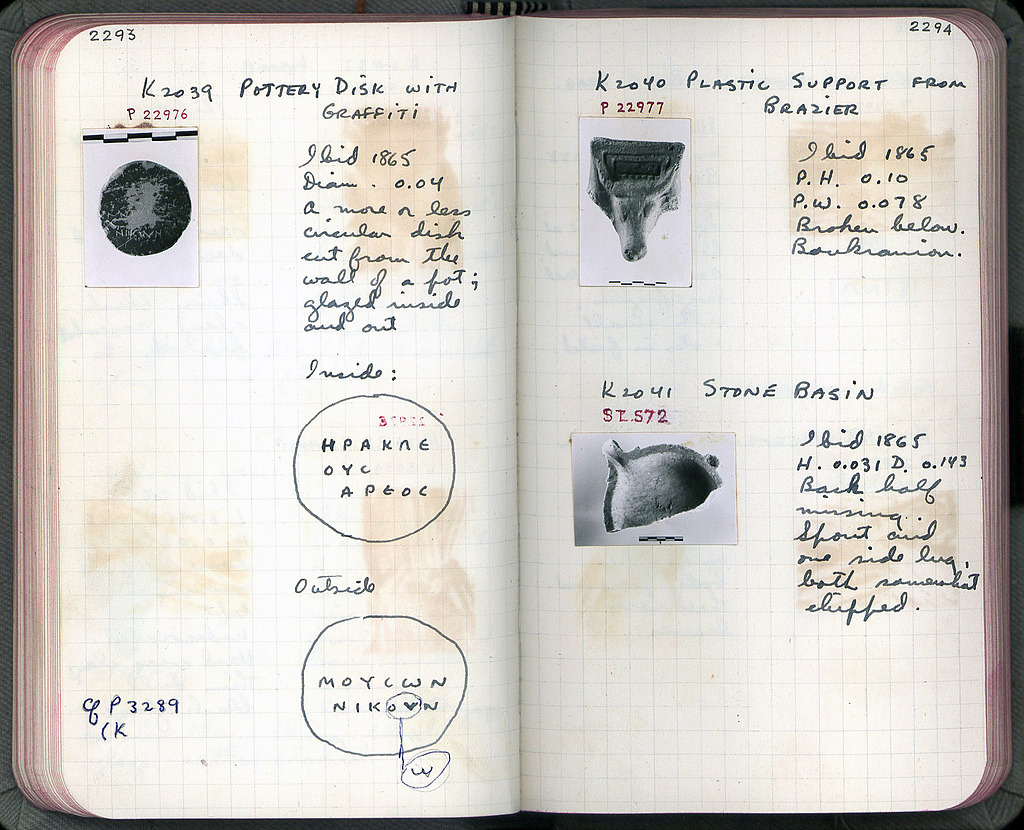 2293
K2039 POTTERY DISK WITH
GRAFFITI
P 22976
Ibid 1865
Diam. 0.04
A more or less
circular disk
cut from the
wall of a pot;
glazed inside
and out
Inside:
ΗΡΑΚΛΕ
ΟΥC
ΑΡΕΟC
Outside
ΜΟΥCWΝ
ΝΙΚΟVΝ
W
cf P 3289
(K
2294
K2040 PLASTIC SUPPORT FROM
BRAZIER
P 22977
Ibid 1865
P.H. 0.10
P.W. 0.078
Broken below.
Boukranion.
K2041 STONE BASIN
ST.572
Ibid 1865
H. 0.031 D. 0.143
Back half
missing.
Spout and
one side lug,
both somewhat
chipped.